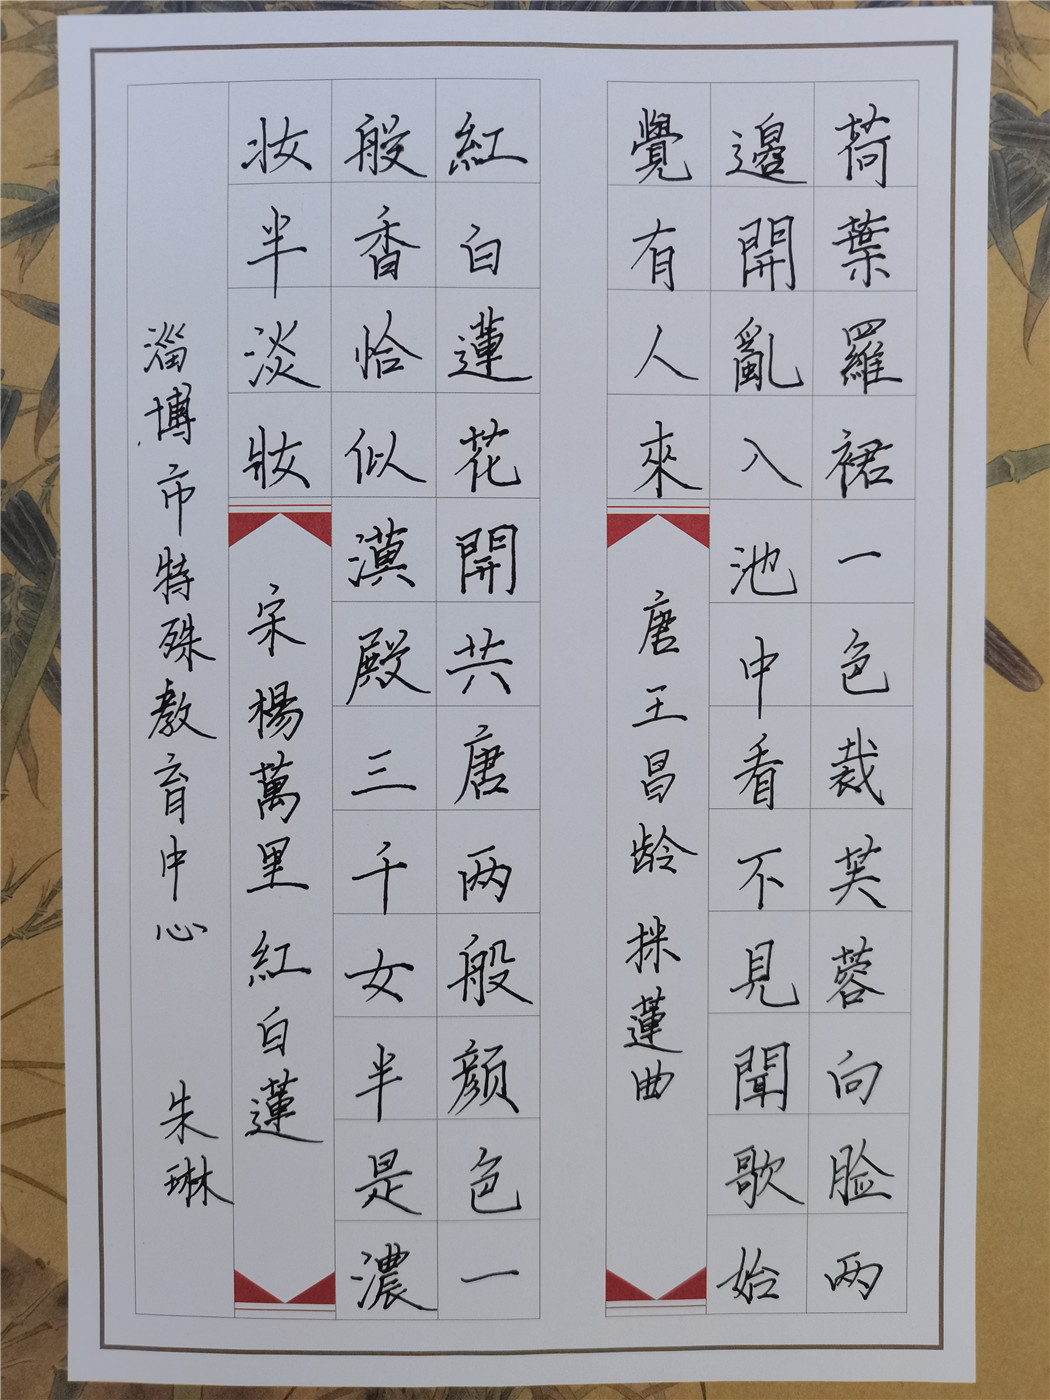 荷葉羅裙一色裁芙蓉向脸两
邊開亂入池中看不見聞歌始
覺有人來
唐王昌龄 採蓮曲
紅白蓮花開共唐两般顔色一
般香恰似漢殿三千女半是濃
妝半淡妝
宋楊萬里 紅白蓮
淄博市特殊教育中心 朱琳